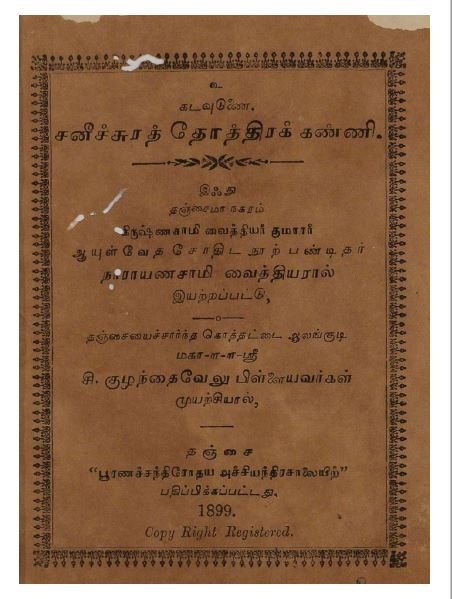 உ
கடவுடுணை.
சனீச்சுரத் தோத்திரக் கண்ணி.
இஃது
தஞ்சைமா நகரம்
கிருஷ்ணசாமி வைத்தியர் குமாரர்
ஆயுள்வேத சோதிட நூற் பண்டிதர்
நாராயணசாமி வைத்தியரால்
இயற்றப்பட்டு,
தஞ்சையைச்சார்ந்த கொத்தட்டை ஆலங்குடி
மகா-ள-ள-ஸ்ரீ
சி. குழந்தைவேலு பிள்ளையவர்கள்
முயற்சியால்,
தஞ்சை
“பூரணச்சந்திரோதய அச்சியந்திரசாலையிற்”
பதிப்பிக்கப்பட்டது.
1899.
Copy Right Registered.